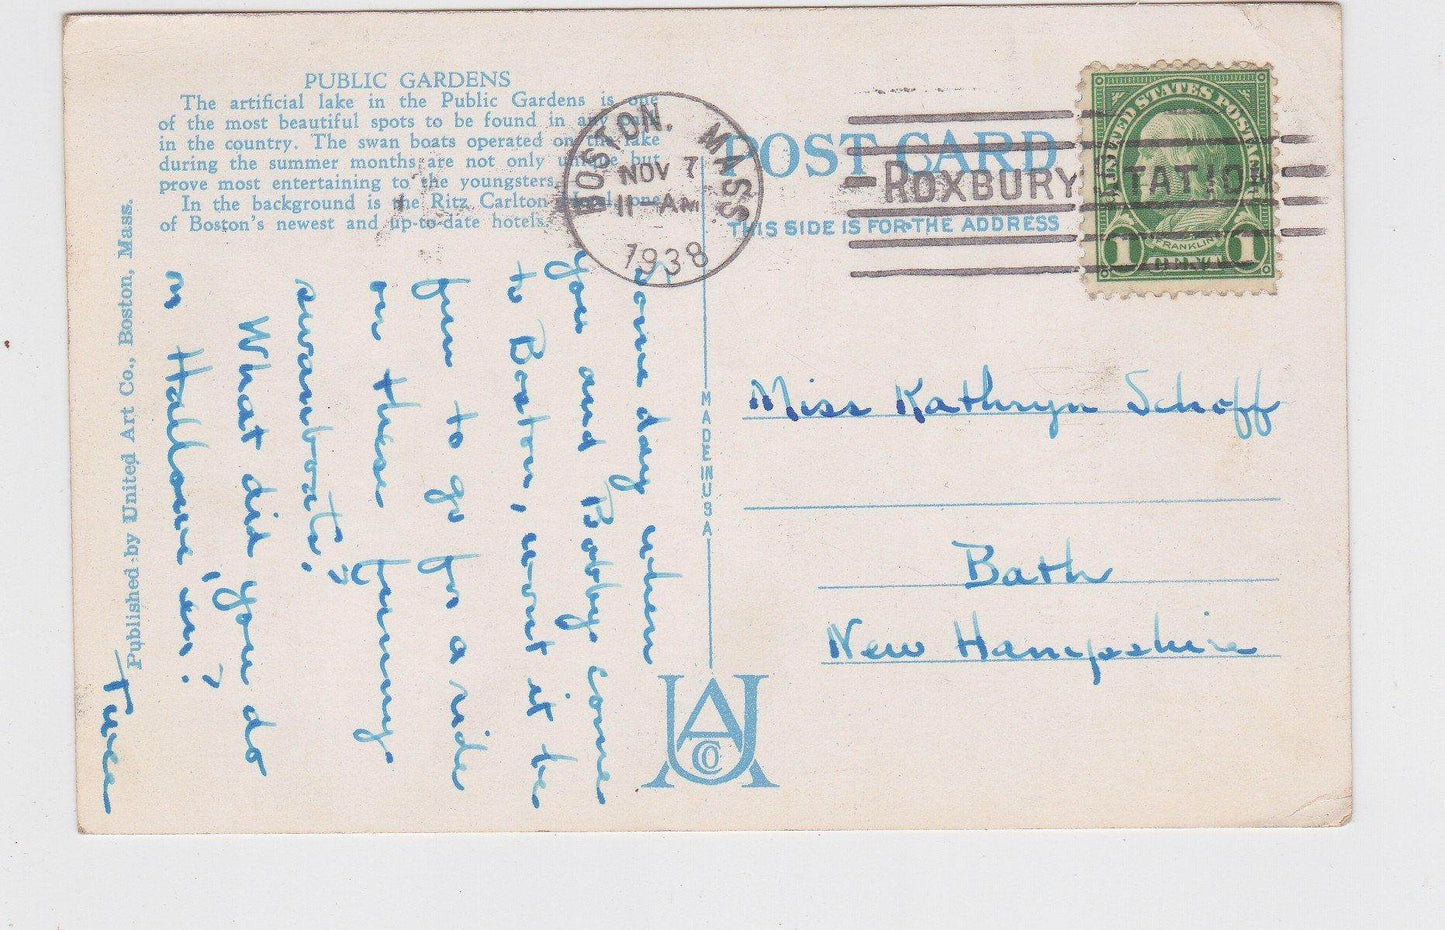 PUBLIC GARDENS
The artificial lake in the Public Gardens is one
of the most beautiful spots to be found in any park
in the country. The swan boats operated on the lake
during the summer months are not only unique but
prove most entertaining to the youngsters.
In the background is the Ritz Carlton Hotel, one
of Boston's newest and up-to-date hotels.
Published by United Art Co., Boston, Mass.
Some day when
you and Bobby come
to Boston, won't it be
fun to go for a ride
on these funny
swanboats?
What did you do
on Hallowe'en?
BOSTON, MASS.
NOV 7
11 AM
1938
POST CARD
THIS SIDE IS FOR THE ADDRESS
ROXBURY STATION
UNITED STATES POSTAGE
FRANKLIN
1 CENT 1
MADE IN USA
Miss Kathryn Schoff
Bath
New Hampshire
UACO